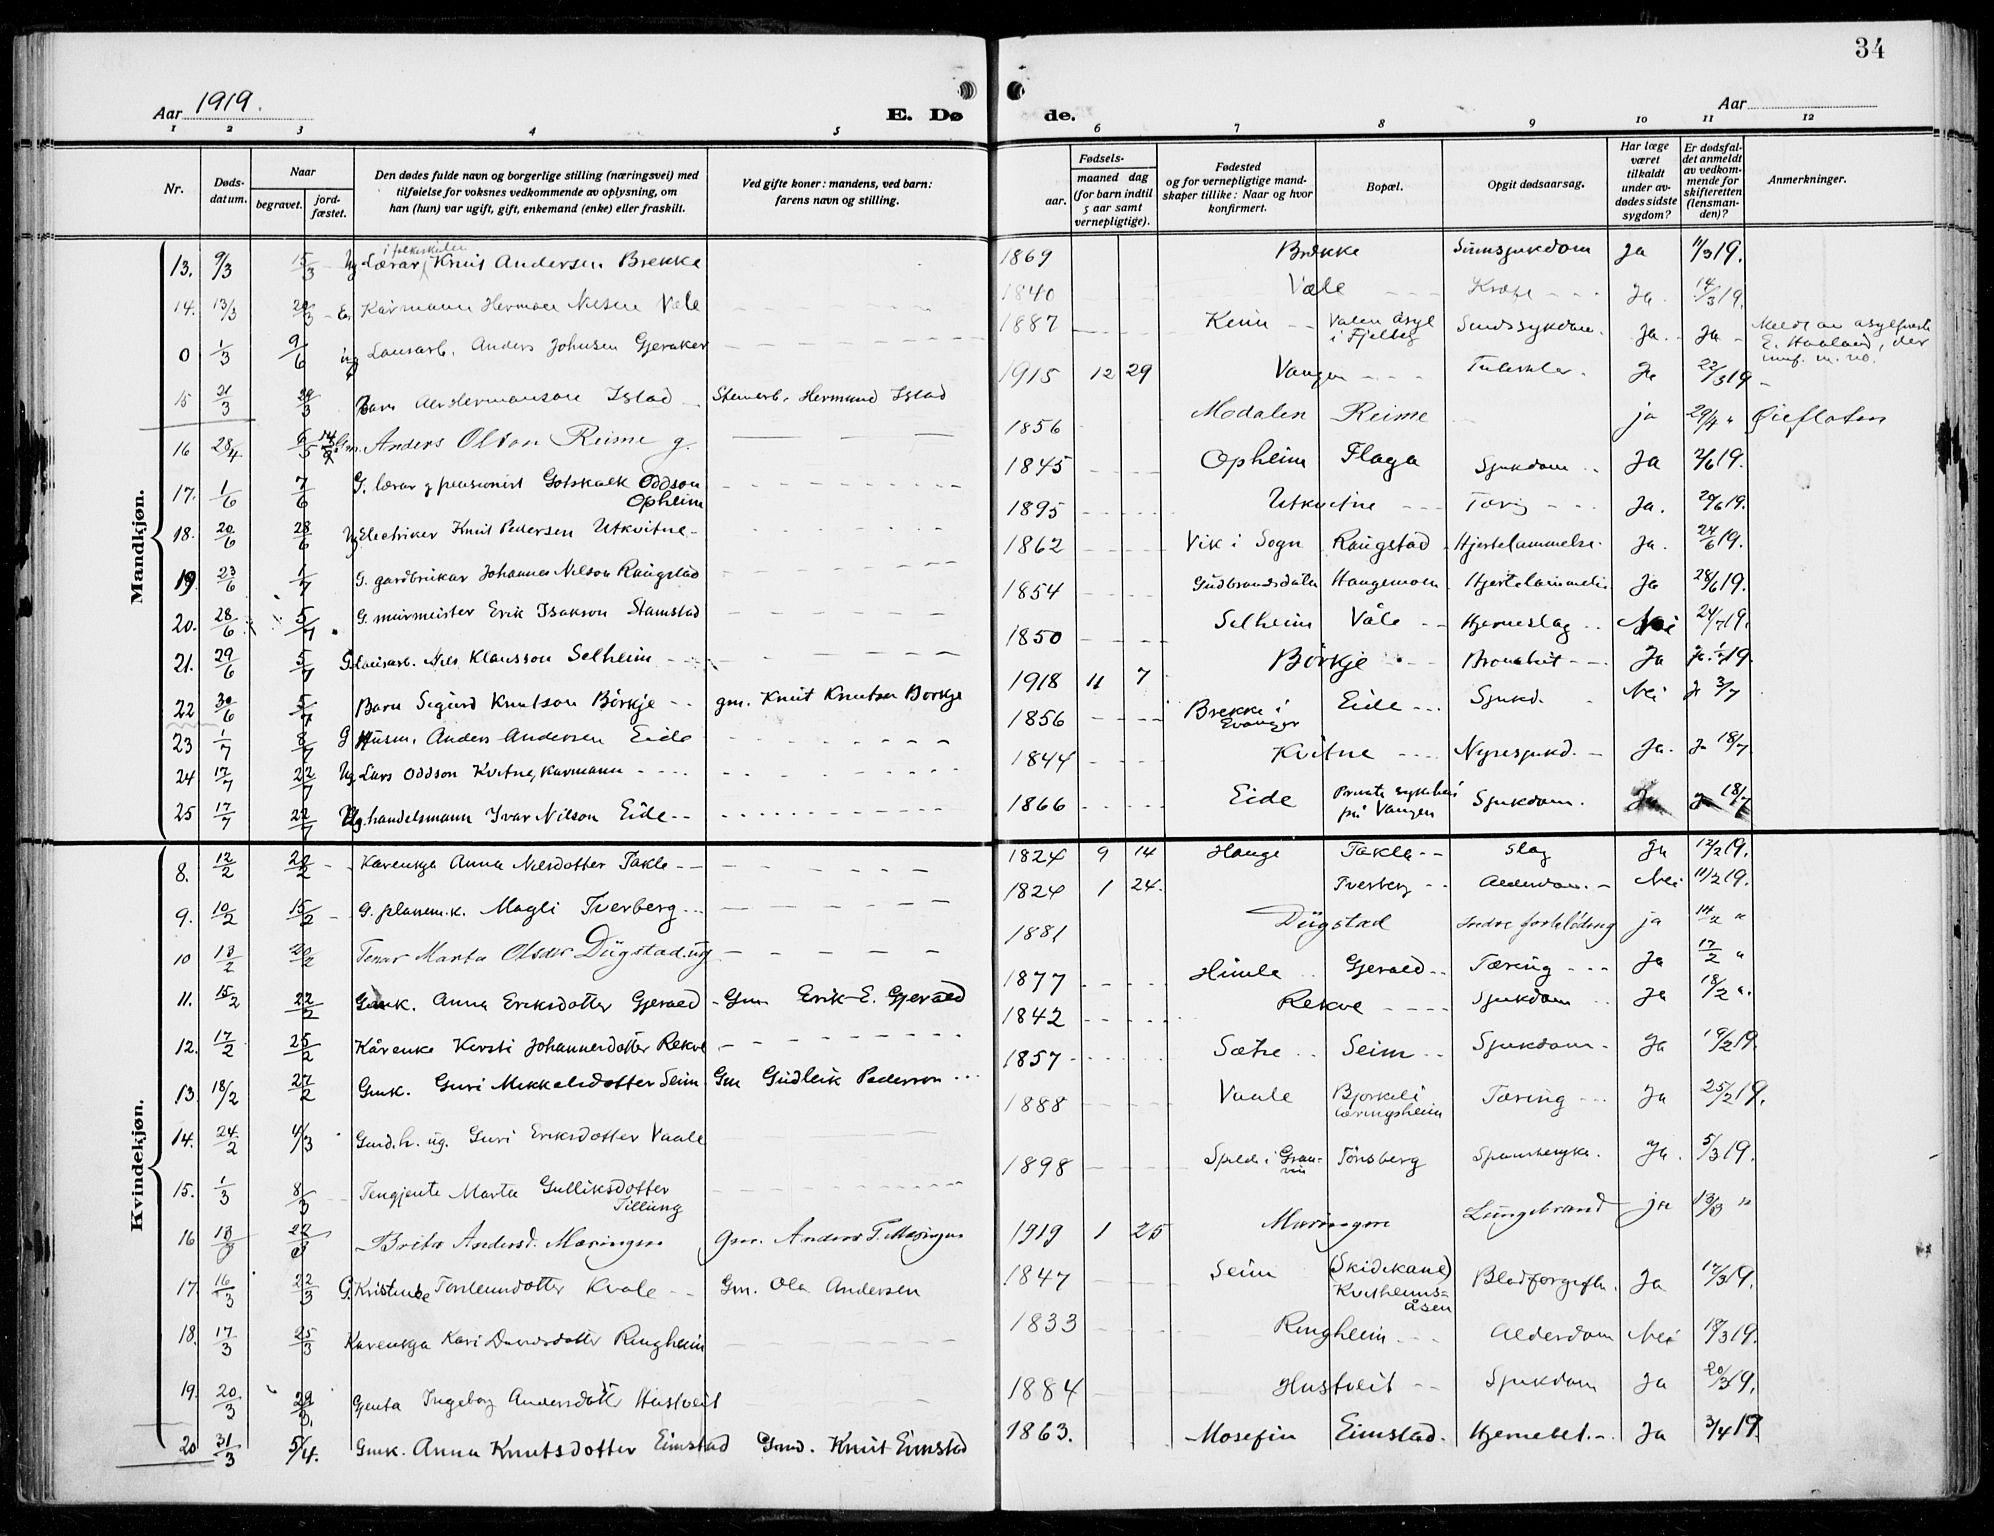 34
Aar 1919.
E. Dø
de.
Aar
1 2 3 4 5 6 7 8 9 10 11 12
Nr.
Døds-
datum.
Naar
begravet.
jord-
fæstet.
Den dødes fulde navn og borgerlige stilling (næringsvei) med
tilføielse for voksnes vedkommende av oplysning, om
han (hun) var ugift, gift, enkemand (enke) eller fraskilt.
Ved gifte koner: mandens, ved barn:
farens navn og stilling.
Fødsels-
aar. maaned dag
(for barn indtil
5 aar samt
vernepligtige).
Fødested
og for vernepligtige mand-
skaper tillike: Naar og hvor
konfirmert.
Bopæl.
Opgit dødsaarsag.
Har læge
været
tilkaldt
under av-
dødes sidste
sygdom?
Er dødsfal-
det anmeldt
av vedkom-
mende for
skifteretten
(lensman-
den)?
Anmerkninger.
Mandkjøn.
13. 9/3 15/3 Ug Lærar i folkeskulen Knut Andersen Brekke 1869 Brekke Sinnsjukdom Ja 11/3 19.
14. 13/3 20/3 E. Kårmann Herman Nilsen Væle 1840 Væle Kræft Ja. 14/3 19.
0 1/3 9/6 ug Lausarb. Anders Johnsen Gjeraker 1887 Valen Asyl i Fjelberg Sindssykdom. Ja. Ja
15 21/3 29/3 Barn Hermanson Istad Steinarb. Hermund Istad 1915 12 29 Vangen Ja 22/3 19
16 28/4 6/5 Gm. Anders Olson Reime g. 1856 Modalen Reime ja 29/4 " Øieflaten
17. 1/6 7/6 G. lærar g pensionist Gotskalk Oddson Opheim 1845 Opheim Flaga Sjukdom Ja 2/6 19.
18. 20/6 28/6 Ug Electriker Knut Pedersen Utkvitne 1895 Utkvitne Tæring Ja. 20/6 19.
19 23/6 1/7 G. gardbrukar Johannes Nilson Raugstad 1862 Vik i Sogn Raugstad Hjertelammelse. Ja. 24/6 19.
20. 28/6 5/7 G. murmeister Erik Isakson Stamstad 1854 Gudbrandsdalen Haugemoen Hjertelammelse Ja 28/6 19.
21. 29/6 5/7 G. Lausarb. Nils Klausson Selheim 1850 Selheim Våle Hjerneslag Nei 24/7 19.
22 30/6 5/7 Barn Sigurd Knutson Börkje gm. Knut Knutson Börkje 1918 11 7 Börkje Bronchit Ja Ja 1/7 19.
23 1/7 8/7 G Husm. Anders Andersen Eide 1856 Brekke i Evanger Eide Sjukd. Nei J 3/7
24 17/7 22/7 Ug Lars Oddson Kvitne, Karmann 1844 Kvitne Nyresjukd. Ja. Ja 18/7
25 17/7 22/7 Ug. handelsmann Ivar Nilson Eide 1866 Eide Private sykehus på Vangen Sjukdom. Ja Ja 18/7
Kvindekjøn.
8. 12/2 22/2 Kårenkja Anna Nilsdotter Takle 1824 9 14 Hauge Takle slag Ja 12/2 19.
9. 10/2 15/2 G. plassm.k. Magli Tverberg 1824 1 24. Tverberg Alderdom. Nei 11/2 19.
10 13/2 20/2 Tenar Marta Olsdr Dügstad ug 1881 Dügstad Indre forblödning ja 14/2 "
11. 15/2 22/2 Gmk. Anna Eriksdotter Gjeraed Gm Erik E. Gjeraed 1877 Himle Gjeraed Tæring Ja 17/2 "
12. 17/2 25/2 Kårenke Kersti Johannesdotter Rekve 1842 Rekve Sjukdom Ja 18/2 ".
13. 18/2 27/2 Gmk. Guri Mikkelsdotter Seim Gm Gudleik Pederson 1857 Sætre Seim Sjukdom Ja 19/2 19.
14. 24/2 4/3 Gmd.h. ug. Guri Eriksdotter Vaale 1888 Vaale Bjorkeli tæringsheim Tæring Ja 25/2 19.
15. 1/3 8/3 Tengjente Marta Gulliksdotter Tillung 1898 Granvin Tönsberg Spanskesyke. Ja. 5/3 19.
16 13/3 22/3 Brita Andersd. Mæringen gm. Anders T. Mæringen 1919 1 25 Mæringen Lungebrand ja 13/3 "
17. 16/3 22/3 G. Kristense Torleivsdotter Kvale Gm. Ola Andersen 1847 Seim (Skidekane) Kvitheimsåsen Blodforgiftn. Ja 17/3 19.
18. 17/3 25/3 Kårenkja Kari Davidsdotter Ringheim 1833 Ringheim Alderdom Nei 18/3 19.
19. 20/3 29/3. Gjenta Ingeborg Andersdotter Hustveit 1884 Hustveit Sjukdom Ja 20/3 19.
20 31/3 5/4. Gmk. Anna Knutsdotter Eimstad Gmd. Knut Eimstad 1863. Mosefin Eimstad. Hjernebet. Ja 3/4 19